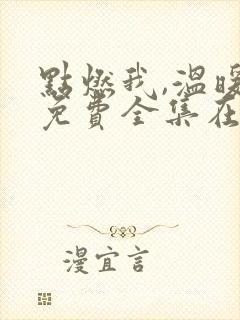 點燃我,溫暖
免費全集在
漫宜言